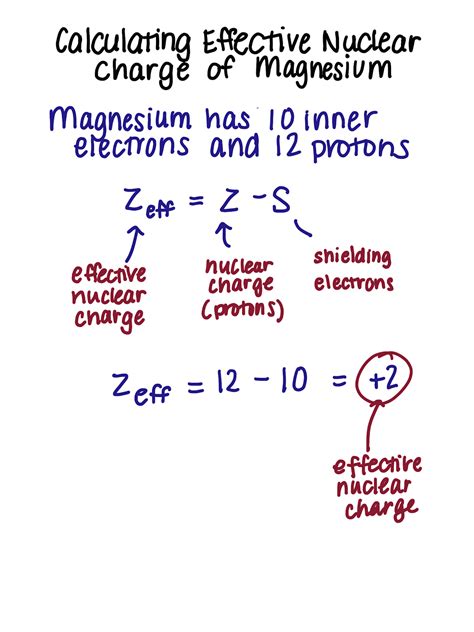 Calculating Effective Nuclear
Charge of Magnesium
Magnesium has 10 inner
electrons and 12 protons
Zeff = Z - S
effective
nuclear
charge
nuclear
charge
(protons)
shielding
electrons
Zeff = 12 - 10 = +2
effective
nuclear
charge